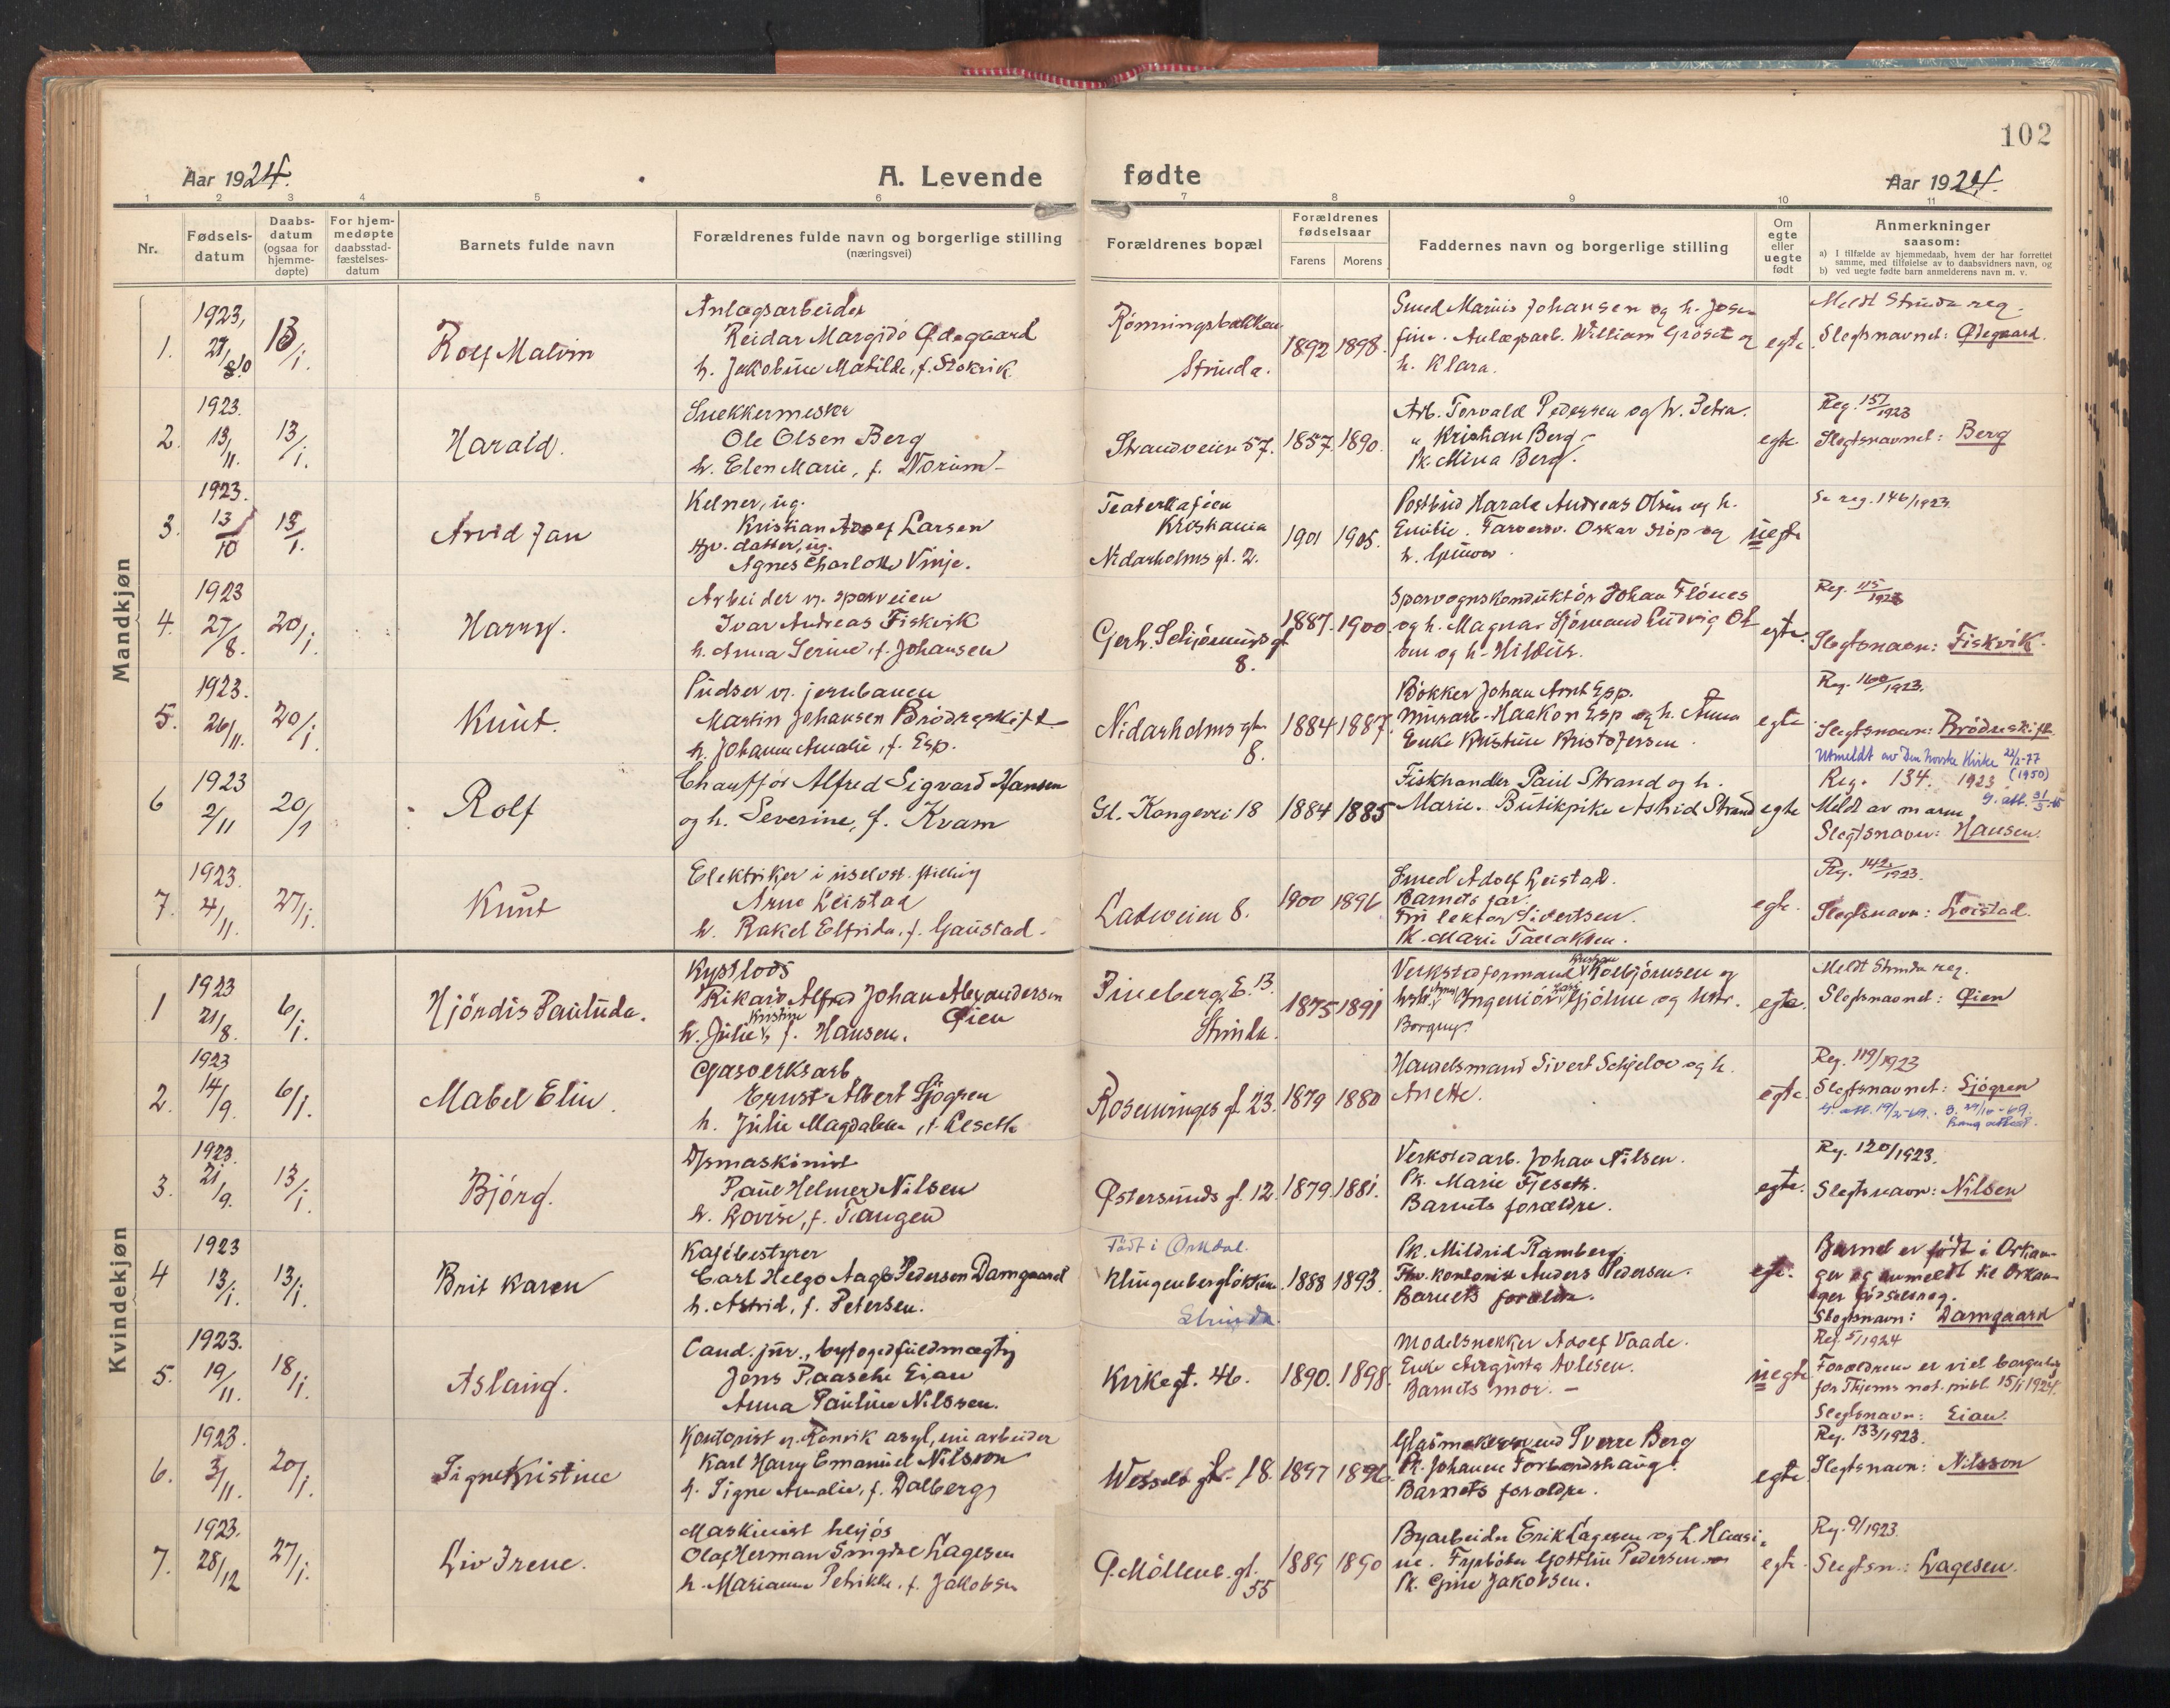 102
Aar 1924.
A. Levende
fødte
Aar 1924.
1 2 3 4 5 6 7 8 9 10 11
Nr.
Fødsels-
datum
Daabs-
datum
(ogsaa for
hjemme-
døpte)
For hjem-
medøpte
daabsstad-
fæstelses-
datum
Barnets fulde navn
Forældrenes fulde navn og borgerlige stilling
(næringsvei)
Forældrenes bopæl
Forældrenes
fødselsaar
Farens Morens
Faddernes navn og borgerlige stilling
Om
egte
eller
uegte
født
Anmerkninger
saasom:
a) I tilfælde av hjemmedaab, hvem der har forrettet
samme, med tilføielse av to daabsvidners navn, og
b) ved uegte fødte barn anmelderens navn m. v.
Mandkjøn
1.
1923,
27/10
13/1.
Rolf Malvin
Anlægsarbeider
Reidar Margido Ødegaard
h. Jakobine Matilde, f. Stokvik
Rønningsbakken
Strinda.
1892 1898.
Smed Marius Johansen og h. Jose-
fine. Anlægsarb. William Grøset og
h. Klara.
egte
Meldt Strinda reg.
Slegtsnavnet: Ødegaard.
2.
1923.
13/11.
13/1.
Harald.
Snekkermester
Ole Olsen Berg
h. Elen Marie, f. Norum
Strandveien 57.
1857. 1890.
Arb. Torvald Pedersen og h. Petra.
" Kristian Berg -
Pk. Mina Berg.
egte
Reg. 157/1923
Slegtsnavnet: Berg
3.
1923.
13/10
13/1.
Arvid Jan
Kelner, ug.
Kristian Adolf Larsen
Hv. datter, ug.
Agnes Charlotte Vinje.
Teaterkaféen
Kristiania
Nidarholms gt. 2.
1901 1905.
Postbud Harald Andreas Olsen og h.
Emilie. Farverisv. Oskar Støp og
h. Gunvor.
uegte
Se reg. 146/1923.
4.
1923
27/8.
20/1.
Harry.
Arbeider v. sporveien
Ivar Andreas Fiskvik
h. Anna Serine, f. Johansen
Gerh. Schjønnings gt
8.
1887. 1900.
Sporvognskonduktør Johan Flønes
og h. Magna. Sjømand Ludvig Ol-
sen og h.
egte.
Reg. 115/1923
Slegtsnavn: Fiskvik.
5.
1923.
26/11.
20/1.
Knut.
Pudser v. jernbanen
Martin Johansen Brødreskift
h. Johanne Amalie, f. Esp.
Nidarholms gt.
8.
1884 1887.
Bøkker Johan Arnt Esp.
Murarb. Haakon Esp og h. Anna
Enke Kristine Kristofersen.
egte
Reg. 160/1923.
Slegtsnavn: Brødreskift
Utmeldt av Den norske Kirke 22/2-77
(1950)
6
1923
2/11
20/1
Rolf
Chauffør Alfred Sigvard Hansen
og h. Severine, f. Kvam
Gl. Kongevei 18
1884 1885
Fiskhandler Paul Strand og h.
Marie. Butikpike Astrid Strand
egte
Reg. 134. 1923
Meldt av moren
Slegtsnavn: Hansen.
7.
1923.
4/11.
27/1.
Knut
Elektriker i uselvst. stilling
Arne Leistad
h. Rakel Elfrida, f. Gaustad.
Ladeveien 8.
1900 1896
Smed Adolf Leistad.
Barnets far.
Fru lektor Sivertsen.
Pk. Marie Tallaksen.
egte.
Reg. 142/1923.
Slegtsnavn: Leistad.
Kvindekjøn
1
1923
21/8.
6/1.
Hjördis Pauluda.
Kystlods
Rikard Alfred Johan Alexandersen
Øien
h. Julie Kristine f. Hansen.
Pineberg, E. 13.
Strinda.
1875 1891
Verkstedformand Kristian Kolbjørnsen og
Ingeniør Gjølme og hstr.
Borgny.
egte.
Meldt Strinda reg.
Slegtsnavnet: Øien
2.
1923
14/9.
6/1.
Mabel Elin.
Gasverksarb.
Ernst Albert Sjögren
h. Julie Magdalene, f. Leseth
Rosenvinges gt. 23.
1879 1880
Handelsmand Sivert Schjelve og h.
Anette.
egte.
Reg. 119/1923
Slegtsnavnet: Sjögren
3.
1923.
21/9.
13/1.
Bjørg.
Dpmaskinist
Paul Helmer Nilsen
h. Lovise, f. Tangen
Østersunds gt. 12.
1879. 1881.
Verkstedarb. Johan Nilsen.
Pk. Marie Fjeseth.
Barnets forældre.
egte.
Reg. 120/1923.
Slegtsnavn: Nilsen
4
1923
13/1.
13/1.
Brit Karen
Kafébestyrer
Carl Helge Aage Pedersen Damgaard
h. Astrid, f. Petersen.
Født i Orkdal.
Klingenbergløkken.
Strinda
1888 1893.
Pk. Mildrid Ramberg.
Fhv. Kontorist Anders Pedersen.
Barnets forældre.
egte.
Barnet er født i Orkan-
ger og anmeldt til Orkan-
ger fødselsreg.
Slegtsnavn: Damgaard
5.
1923.
19/11.
18/1.
Aslaug.
Cand. jur., byfogedfuldmægtig
Jens Paasche Eian
Anna Pauline Nilssen.
Kirkegt. 46.
1890. 1898.
Modelsnekker Adolf Vaade.
Enke Augusta Avlesen.
Barnets mor. -
uegte
Reg. 5/1924
Forældrene er viet borgerlig
for Thjems not. publ. 15/1 1924.
Slegtsnavn: Eian.
6.
1923.
3/11.
20/1.
Signe Kristine
Kontorist v. Rønvik asyl, nu arbeider
Karl Harry Emanuel Nilsson
h. Signe Amalie, f. Dalberg
Wessels gt. 18.
1897 1896
Glasmakersvend Sverre Berg
Pk. Johanne Torbøndshaug.
Barnets forældre.
egte
Reg. 133/1923.
Slegtsnavn: Nilsson
7.
1923.
28/12
27/1.
Liv Irene.
Maskinist
Olaf Herman Lagesen
h. Marianne Petrikke, f. Jakobsen
Ø. Møllenb. gt.
55
1889 1890
Byarbeider Erik Lagesen og h. Hansi-
ne. Fyrbøter Gottlin Pedersen
Pk. Gine Jakobsen.
egte.
Reg. 9/1923.
Slegtsn.: Lagesen.